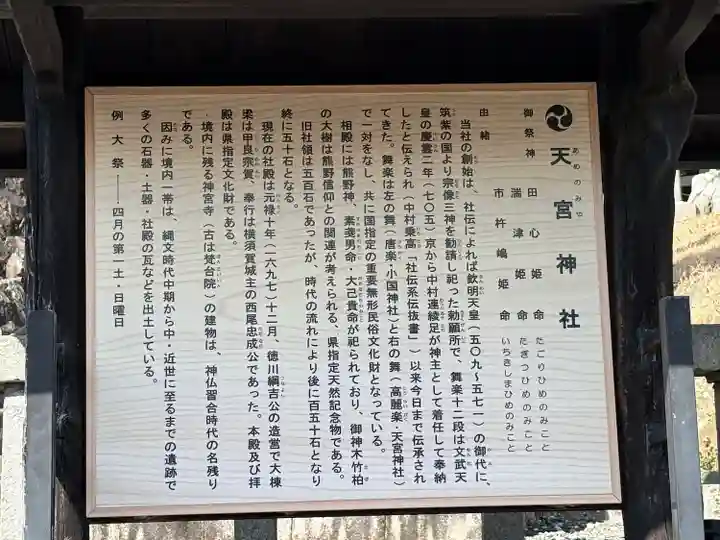 天宮神社
あめのみや
御祭神 田心姫命 たごりひめのみこと
湍津姫命 たぎつひめのみこと
市杵嶋姫命 いちきしまひめのみこと
由緒
当社の創始は、社伝によれば欽明天皇(五〇九~五七一)の御代に、
筑紫の国より宗像三神を勧請し祀った勅願所で、舞楽十二段は文武天
皇の慶雲二年(七〇五)京から中村連綾足が神主として着任して奉納
したと伝えられ(中村乗高「社伝系伝抜書」)以来今日まで伝承され
てきた。舞楽は左の舞(唐楽・小国神社)と右の舞(高麗楽・天宮神社)
で一対をなし、共に国指定の重要無形民俗文化財となっている。
相殿には熊野神、素戔男命・大己貴命が祀られており、御神木竹柏
の大樹は熊野信仰との関連が考えられる、県指定天然記念物である。
旧社領は五百石であったが、時代の流れにより後に百五十石となり
終に五十石となる。
現在の社殿は元禄十年(一六九七)十二月、徳川綱吉公の造営で大棟
梁は甲良宗賀、奉行は横須賀城主の西尾忠成公であった。本殿及び拝
殿は県指定文化財である。
境内に残る神宮寺(古は梵台院)の建物は、神仏習合時代の名残り
である。
因みに境内一帯は、縄文時代中期から中・近世に至るまでの遺跡で
多くの石器・土器・社殿の瓦などを出土している。
例大祭――四月の第一土・日曜日